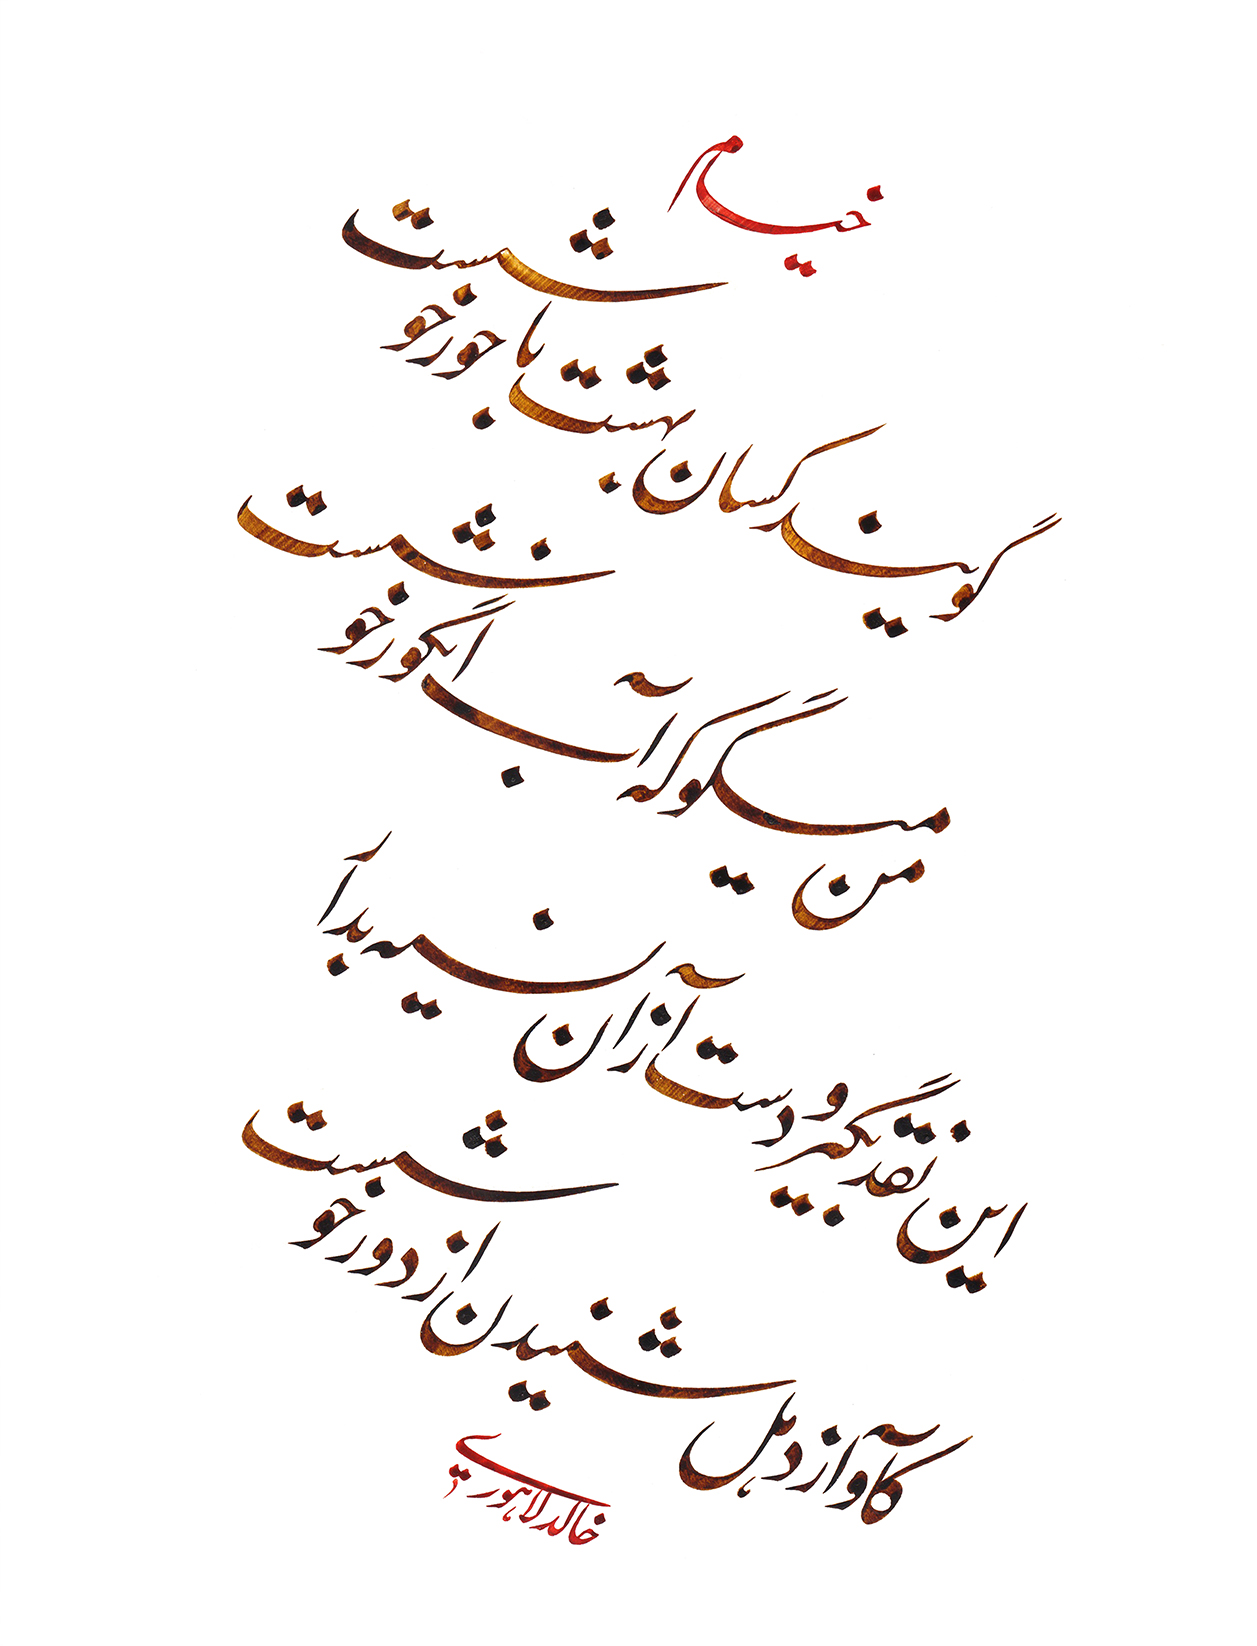 خیام
گویند کسان بهشت با حور خوشست
من میگو که آب انگور خوشست
این نقد بگیر و دست از آن نسیه بدار
کآواز دهل شنیدن از دور خوشست
خالد لاهوری